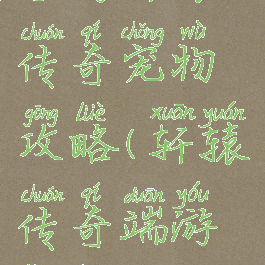 chuán qí chǒng wù
传奇宠物
gōng lüè xuān yuán
攻略(轩辕
chuán qí duān yóu
传奇端游